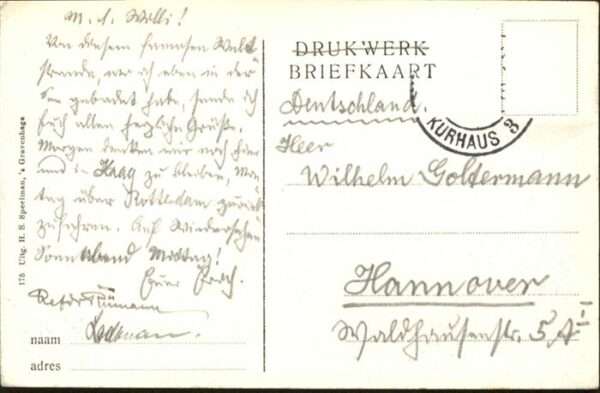 M. l. Willi!
Von diesem famosen Welt
strande, wo ich eben in der
See gebadet habe, sende ich
Euch allen herzliche Grüße.
Morgen denken wir noch hier
und in Haag zu bleiben, Mon
tag über Rotterdam zurück
zufahren. Auf Wiedersehen
Sonnabend Mittag!
Euer
naam
adres
175 Uitg. H. S. Speelman, 's Gravenhage
DRUKWERK
BRIEFKAART
Deutschland.
KURHAUS 3
Heer
Wilhelm Goltermann
Hannover
Waldhausenstr. 5 A I